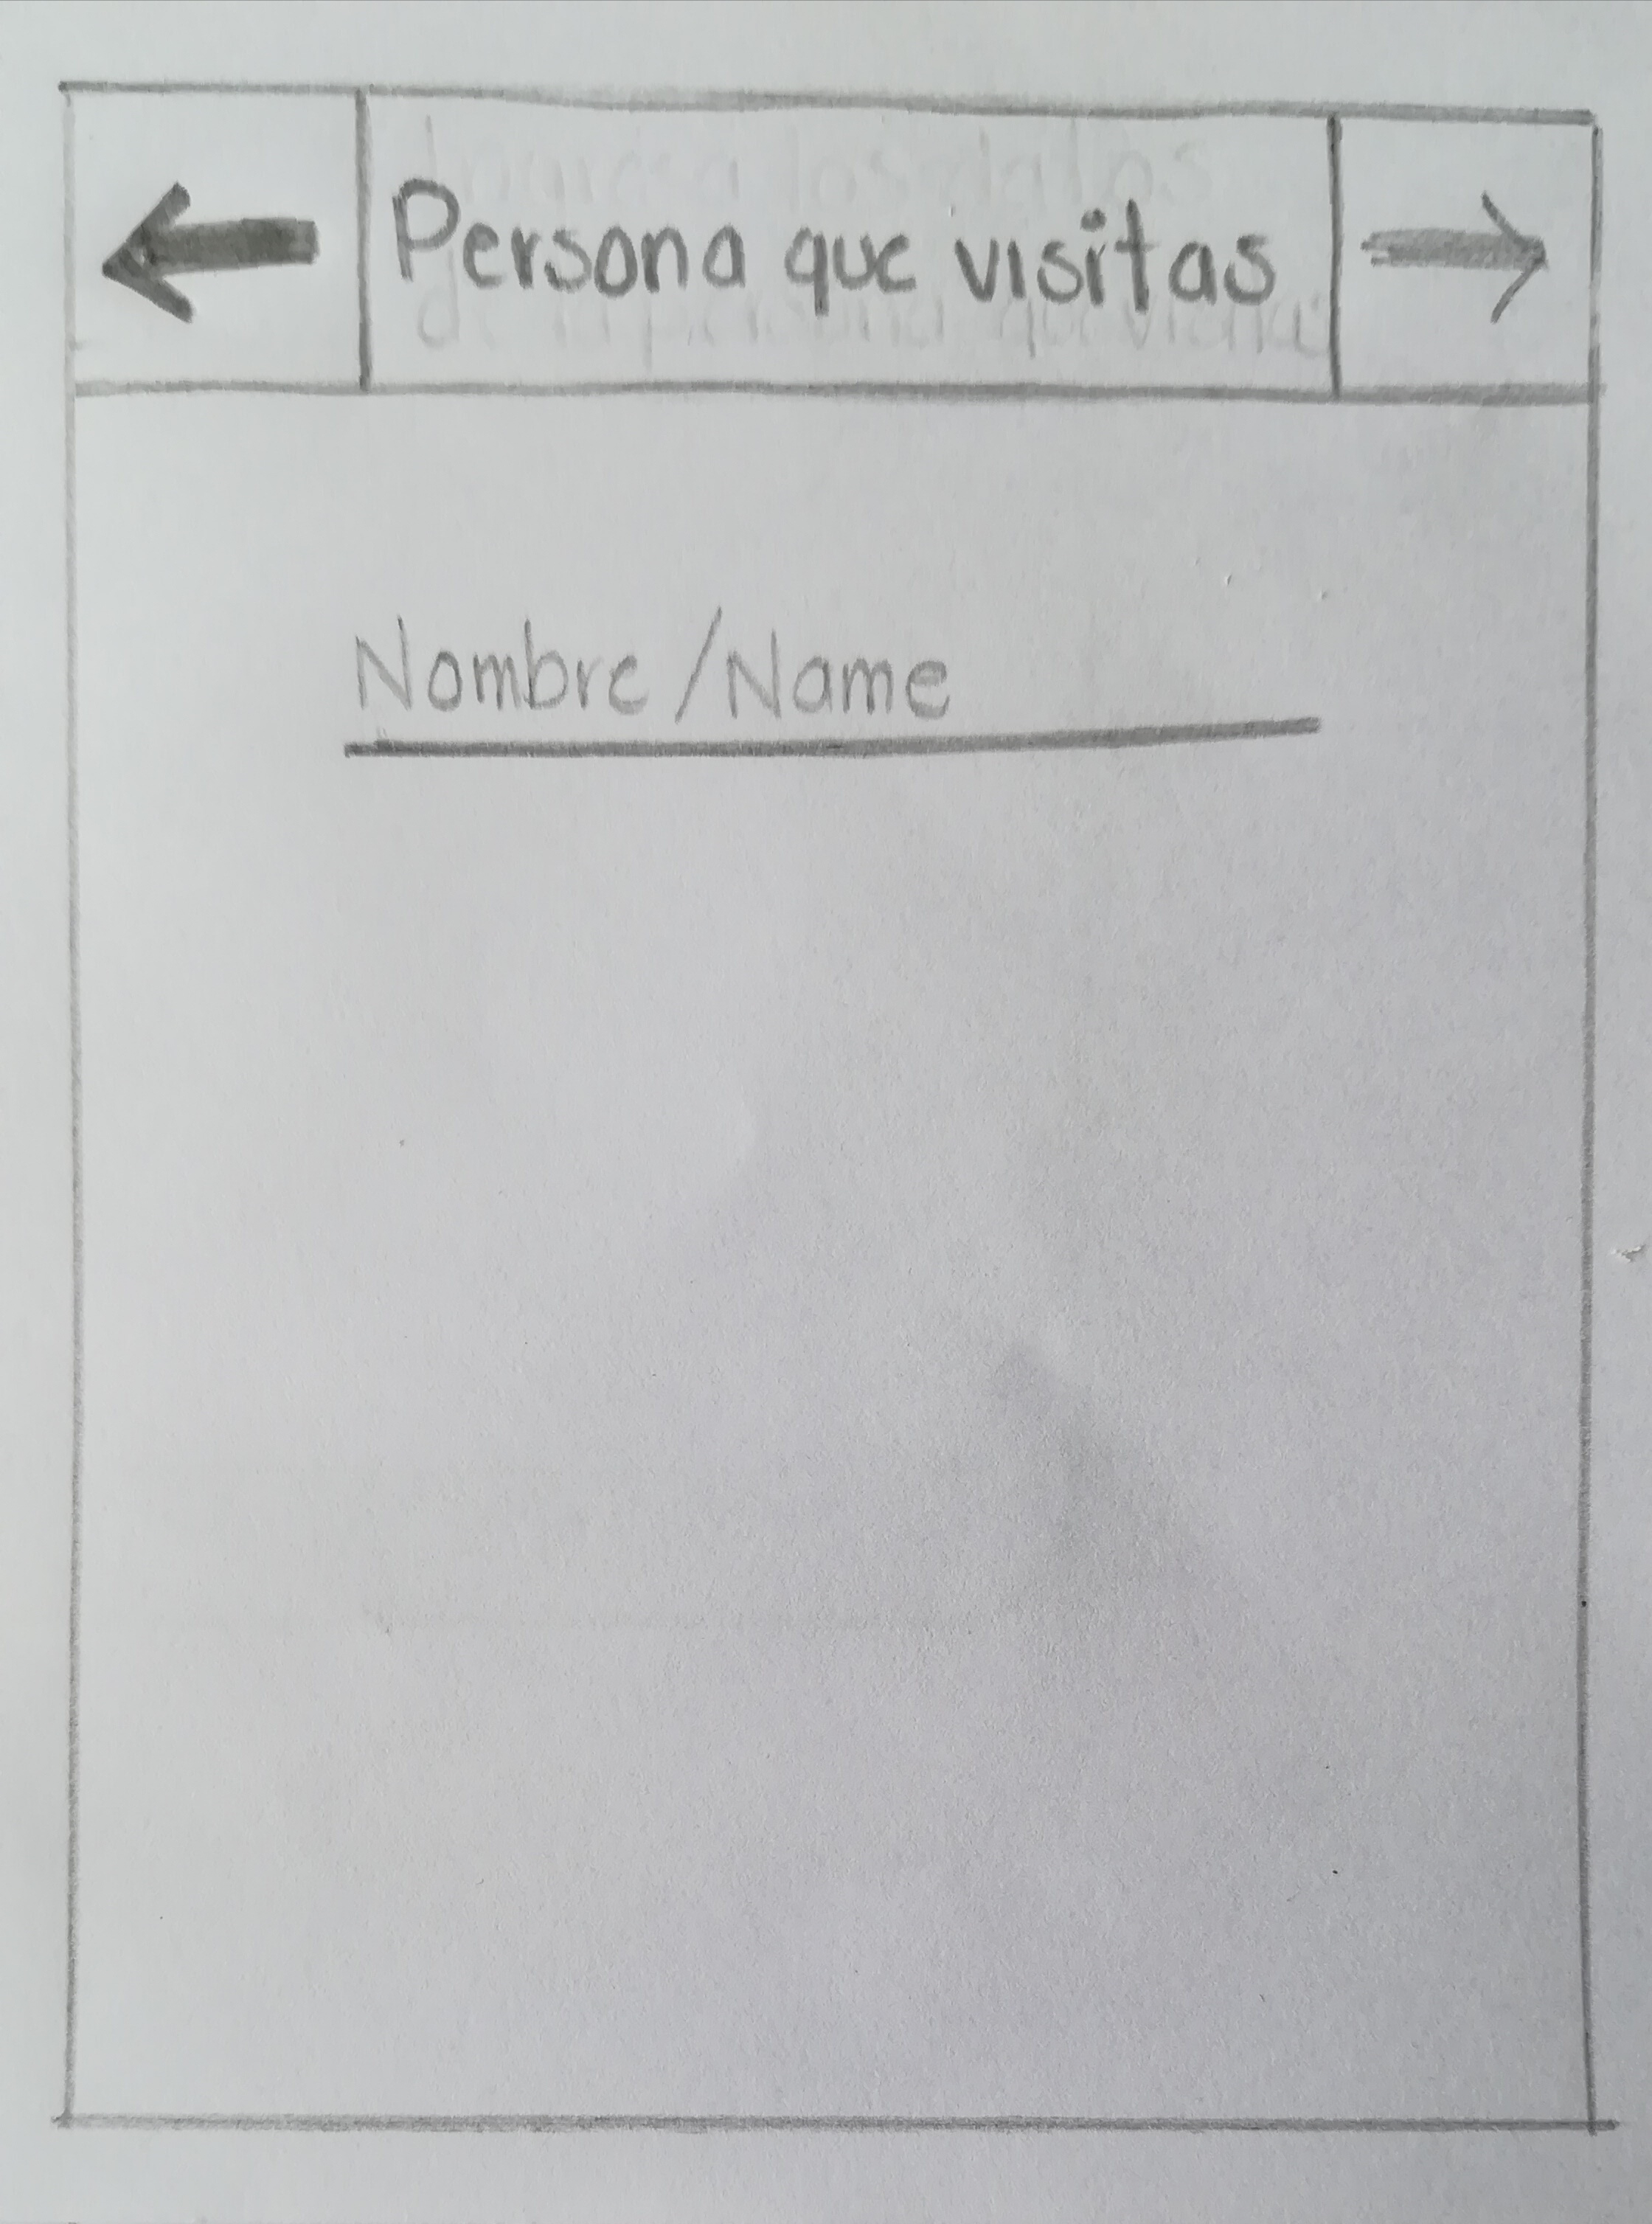 Persona que visitas
Nombre / Name